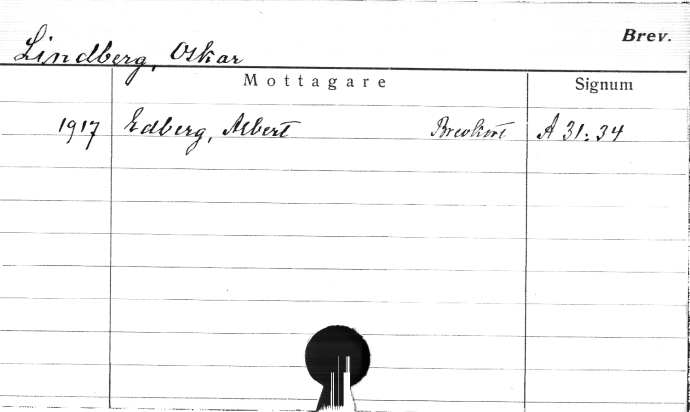 Brev.
Lindberg, Oskar
Mottagare Signum
1917 Edberg, Albert Brevkort A 31:34